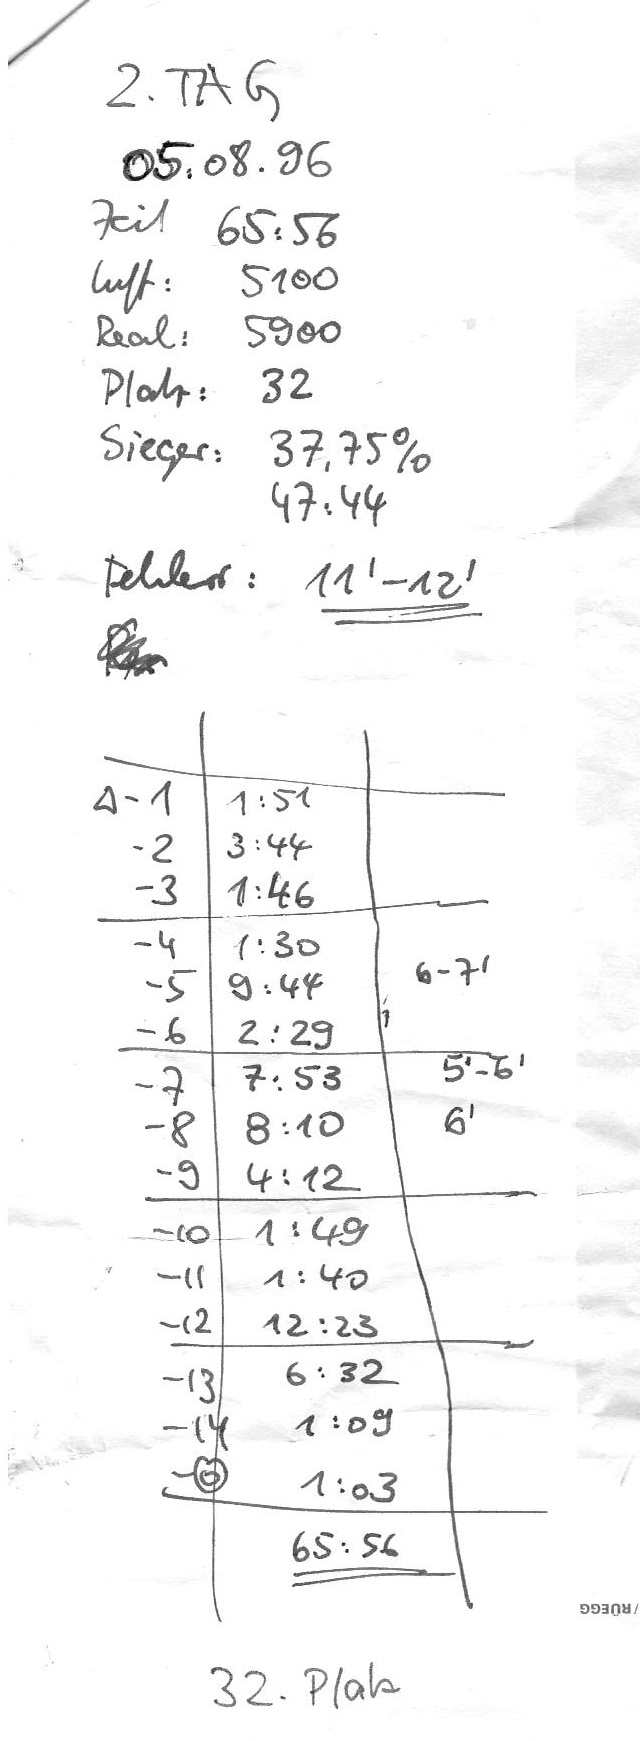 2. TAG
05.08.96
Zeit 65:56
Luft: 5100
Real: 5900
Platz: 32
Sieger: 37,75%
47:44
Fehler: 11'-12'
Δ-1 1:51
-2 3:44
-3 1:46
-4 1:30
-5 9:44 6-7'
-6 2:29
-7 7:53 5'-6'
-8 8:10 6'
-9 4:12
-10 1:49
-11 1:40
-12 12:23
-13 6:32
-14 1:09
-◎ 1:03
65:56
/ RÜEGG
32. Platz